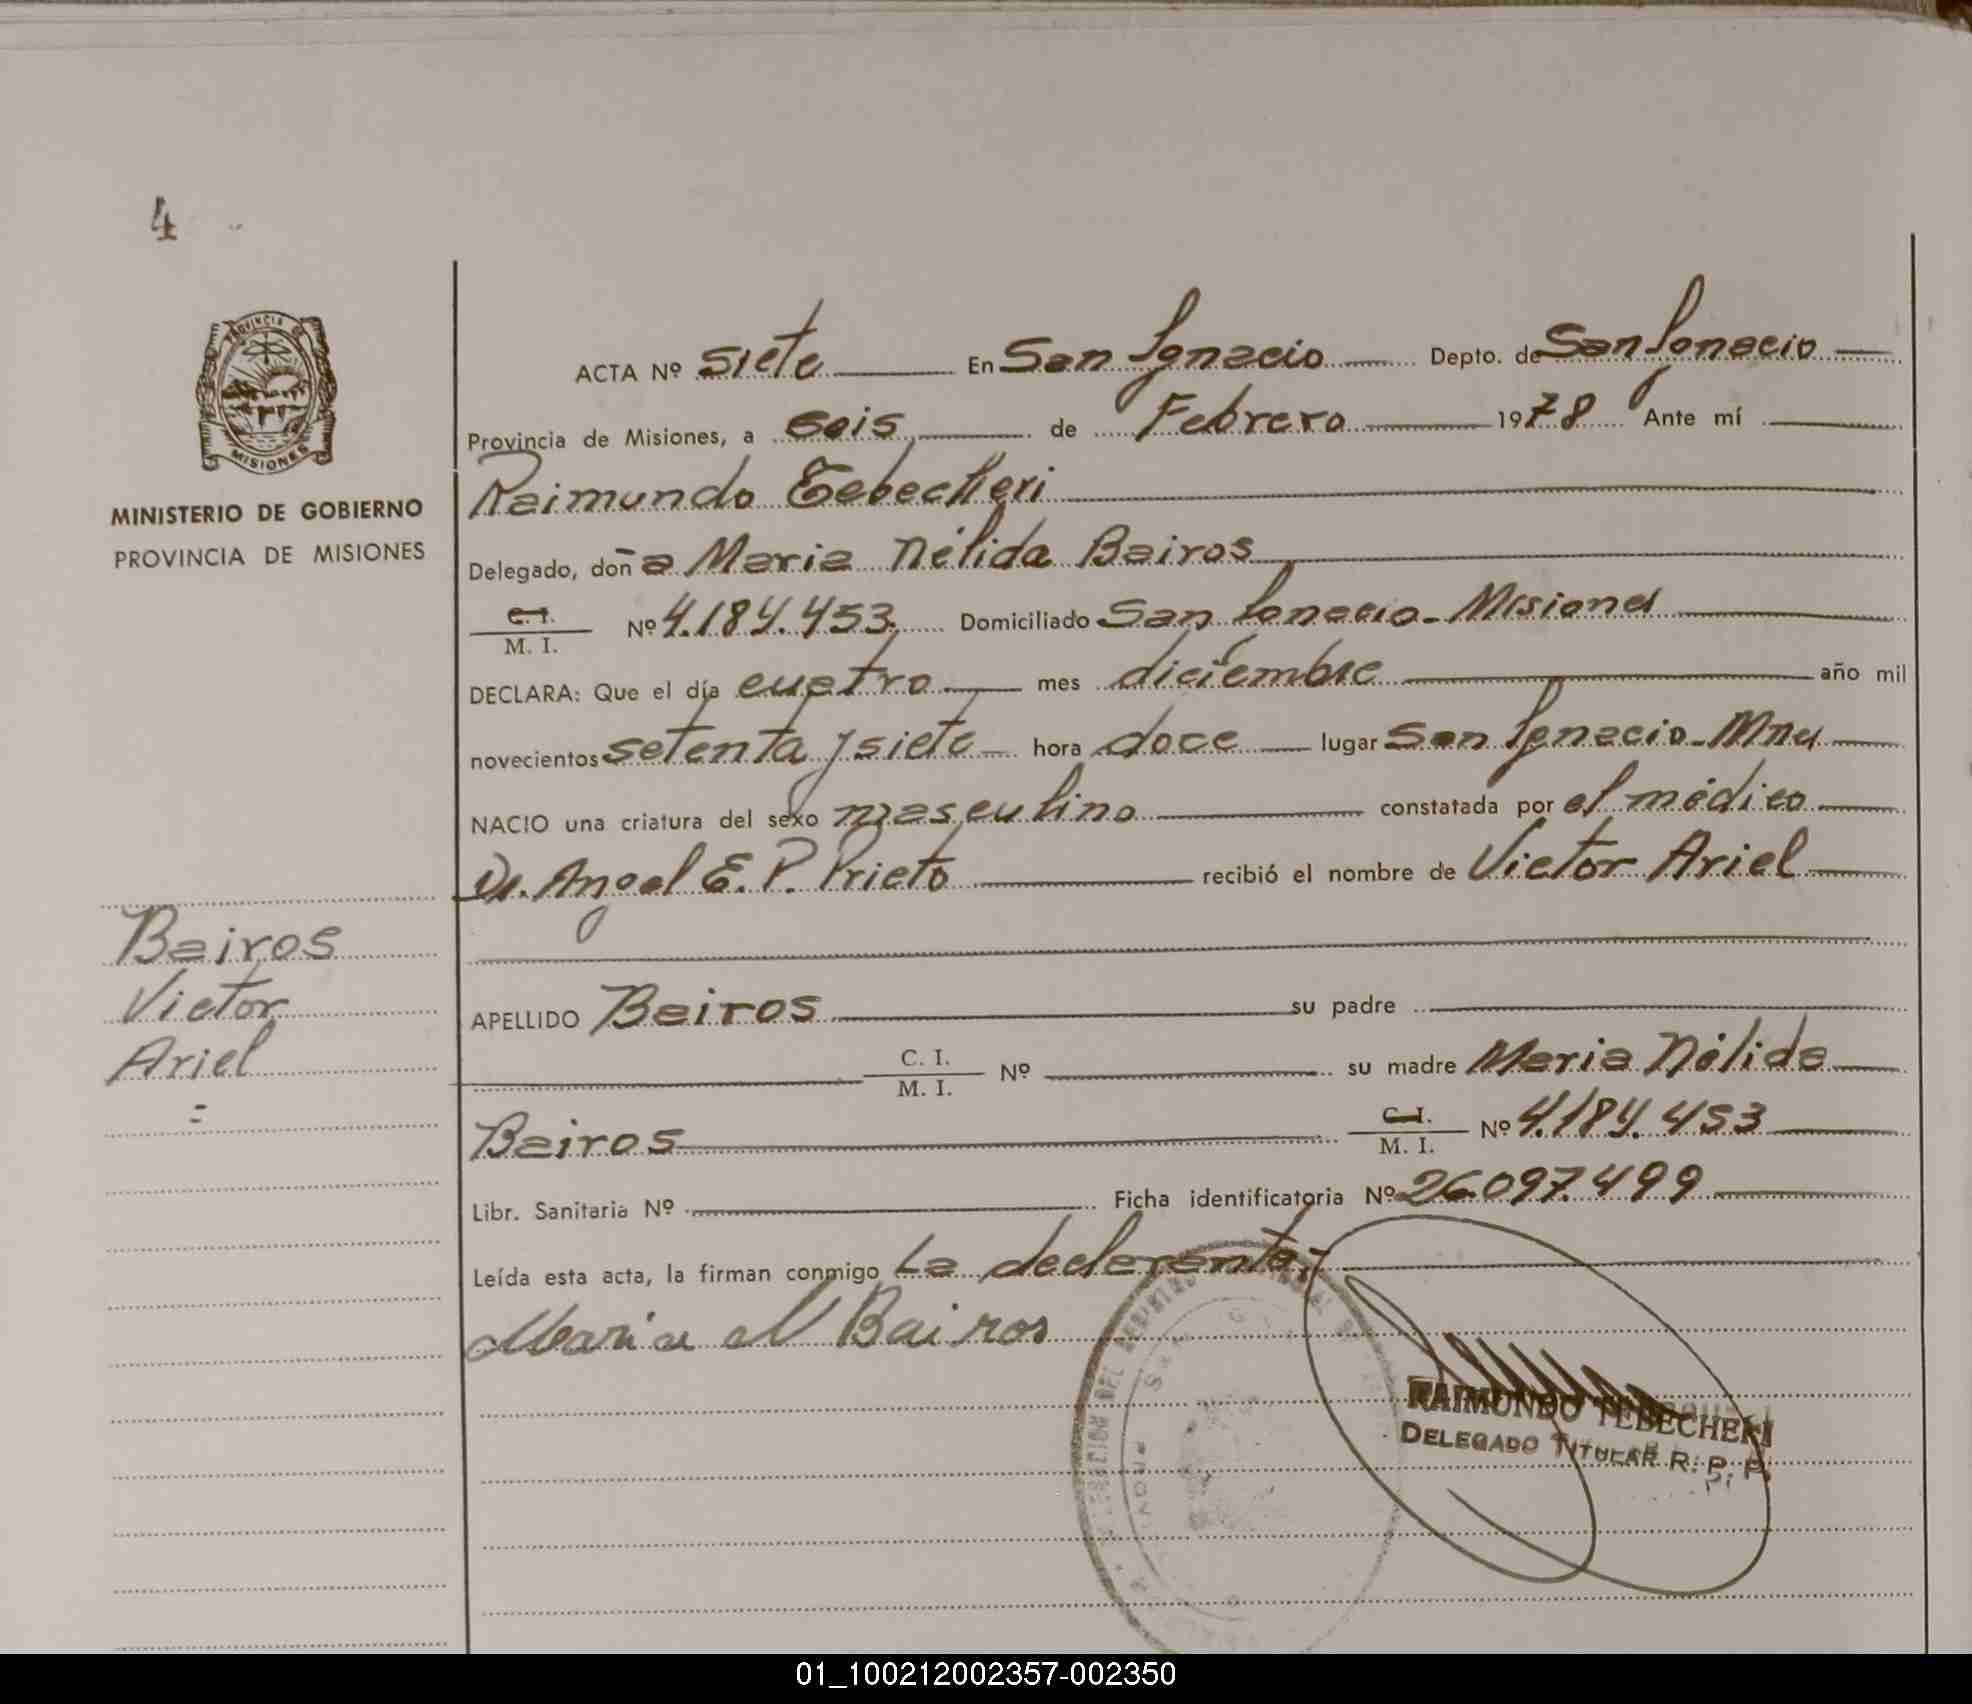 4
PROVINCIA DE
MISIONES
MINISTERIO DE GOBIERNO
PROVINCIA DE MISIONES
Bairos
Victor
Ariel
=
ACTA Nº siete En San Ignacio Depto. de San Ignacio
Provincia de Misiones, a seis de Febrero 1978 Ante mí
Raimundo Tebecheri
Delegado, doña Maria Nélida Bairos
C. I.
M. I. Nº 4.184.453. Domiciliado San Ignacio - Misiones
DECLARA: Que el día cuatro mes diciembre año mil
novecientos setenta y siete hora doce lugar San Ignacio - Mnes
NACIO una criatura del sexo masculino constatada por el médico
Dr. Angel E. P. Prieto recibió el nombre de Victor Ariel
APELLIDO Bairos su padre
C. I.
M. I. Nº su madre Maria Nélida
Bairos C. I.
M. I. Nº 4.184.453
Libr. Sanitaria Nº Ficha identificatoria Nº 26.097.499
Leída esta acta, la firman conmigo La declarante;
Maria N Bairos
RAIMUNDO TEBECHERI
DELEGADO TITULAR R. P. P.
01_100212002357-002350